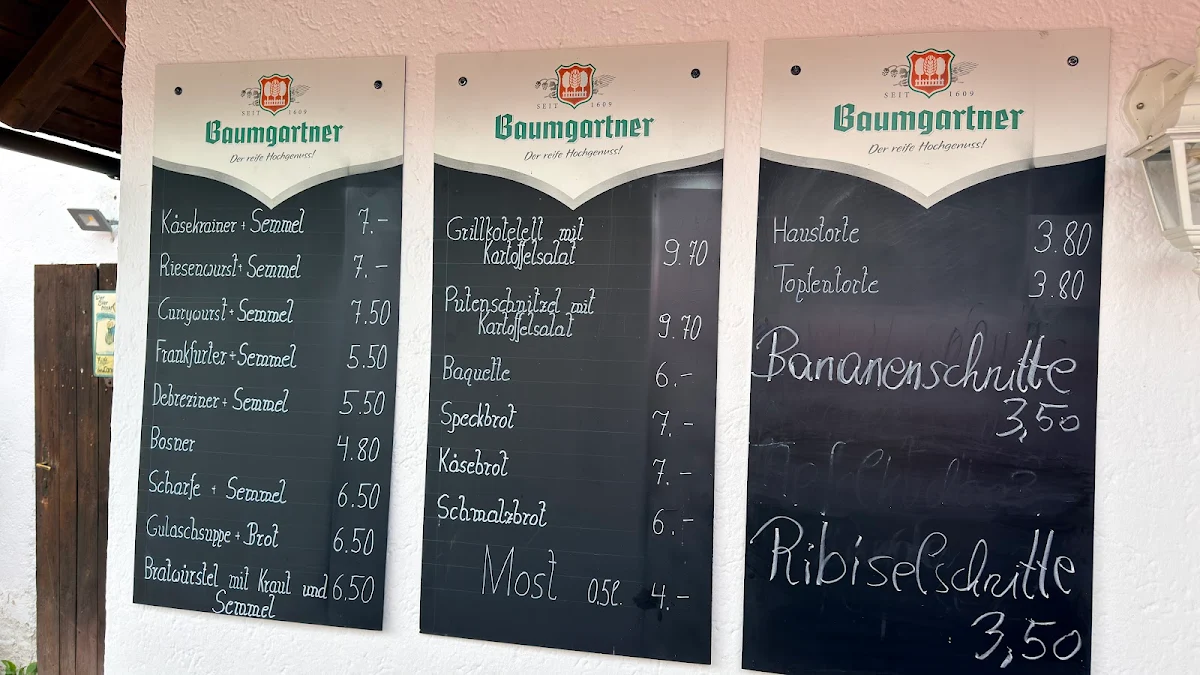 SEIT 1609
Baumgartner
Der reife Hochgenuss!
Käsekrainer + Semmel 7.-
Riesenwurst + Semmel 7.-
Currywurst + Semmel 7.50
Frankfurter + Semmel 5.50
Debreziner + Semmel 5.50
Bosner 4.80
Scharfe + Semmel 6.50
Gulaschsuppe + Brot 6.50
Bratwürstel mit Kraut und 6.50
Semmel
SEIT 1609
Baumgartner
Der reife Hochgenuss!
Grillkotelett mit
Kartoffelsalat 9.70
Putenschnitzel mit
Kartoffelsalat 9.70
Baquette 6.-
Speckbrot 7.-
Käsebrot 7.-
Schmalzbrot 6.-
Most 0,5l. 4.-
SEIT 1609
Baumgartner
Der reife Hochgenuss!
Haustorte 3.80
Topfentorte 3.80
Bananenschnitte
3,50
Ribiselschnitte
3,50